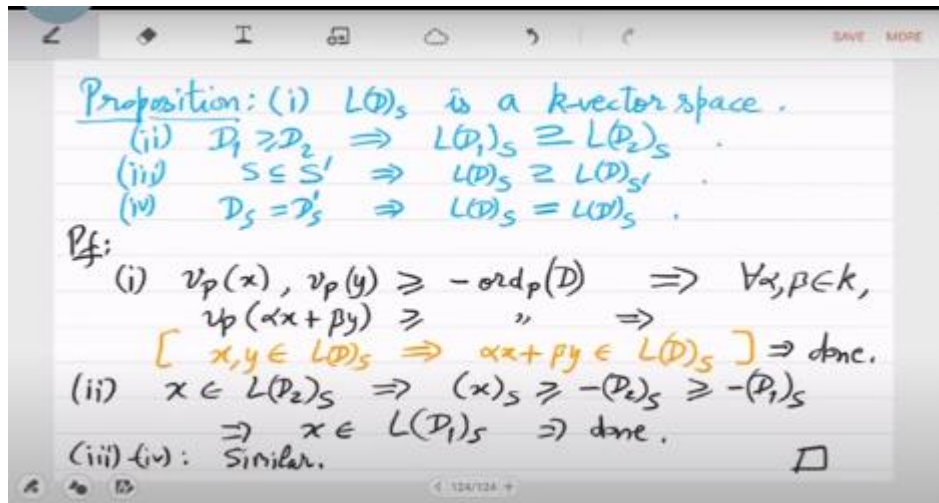 SAVE MORE
Proposition: (i) L(D)_S is a k-vector space.
(ii) D₁ ≥ D₂ ⇒ L(D₁)_S ⊇ L(D₂)_S .
(iii) S ⊆ S' ⇒ L(D)_S ⊇ L(D)_S' .
(iv) D_S = D'_S ⇒ L(D)_S = L(D')_S .
Pf:
(i) v_p(x), v_p(y) ≥ - ord_p(D) ⇒ ∀α,β∈k,
v_p(αx + βy) ≥ " ⇒
[ x,y ∈ L(D)_S ⇒ αx + βy ∈ L(D)_S ] ⇒ done.
(ii) x ∈ L(D₂)_S ⇒ (x)_S ≥ -(D₂)_S ≥ -(D₁)_S
⇒ x ∈ L(D₁)_S ⇒ done.
(iii)-(iv): Similar. □
< 124/124 +